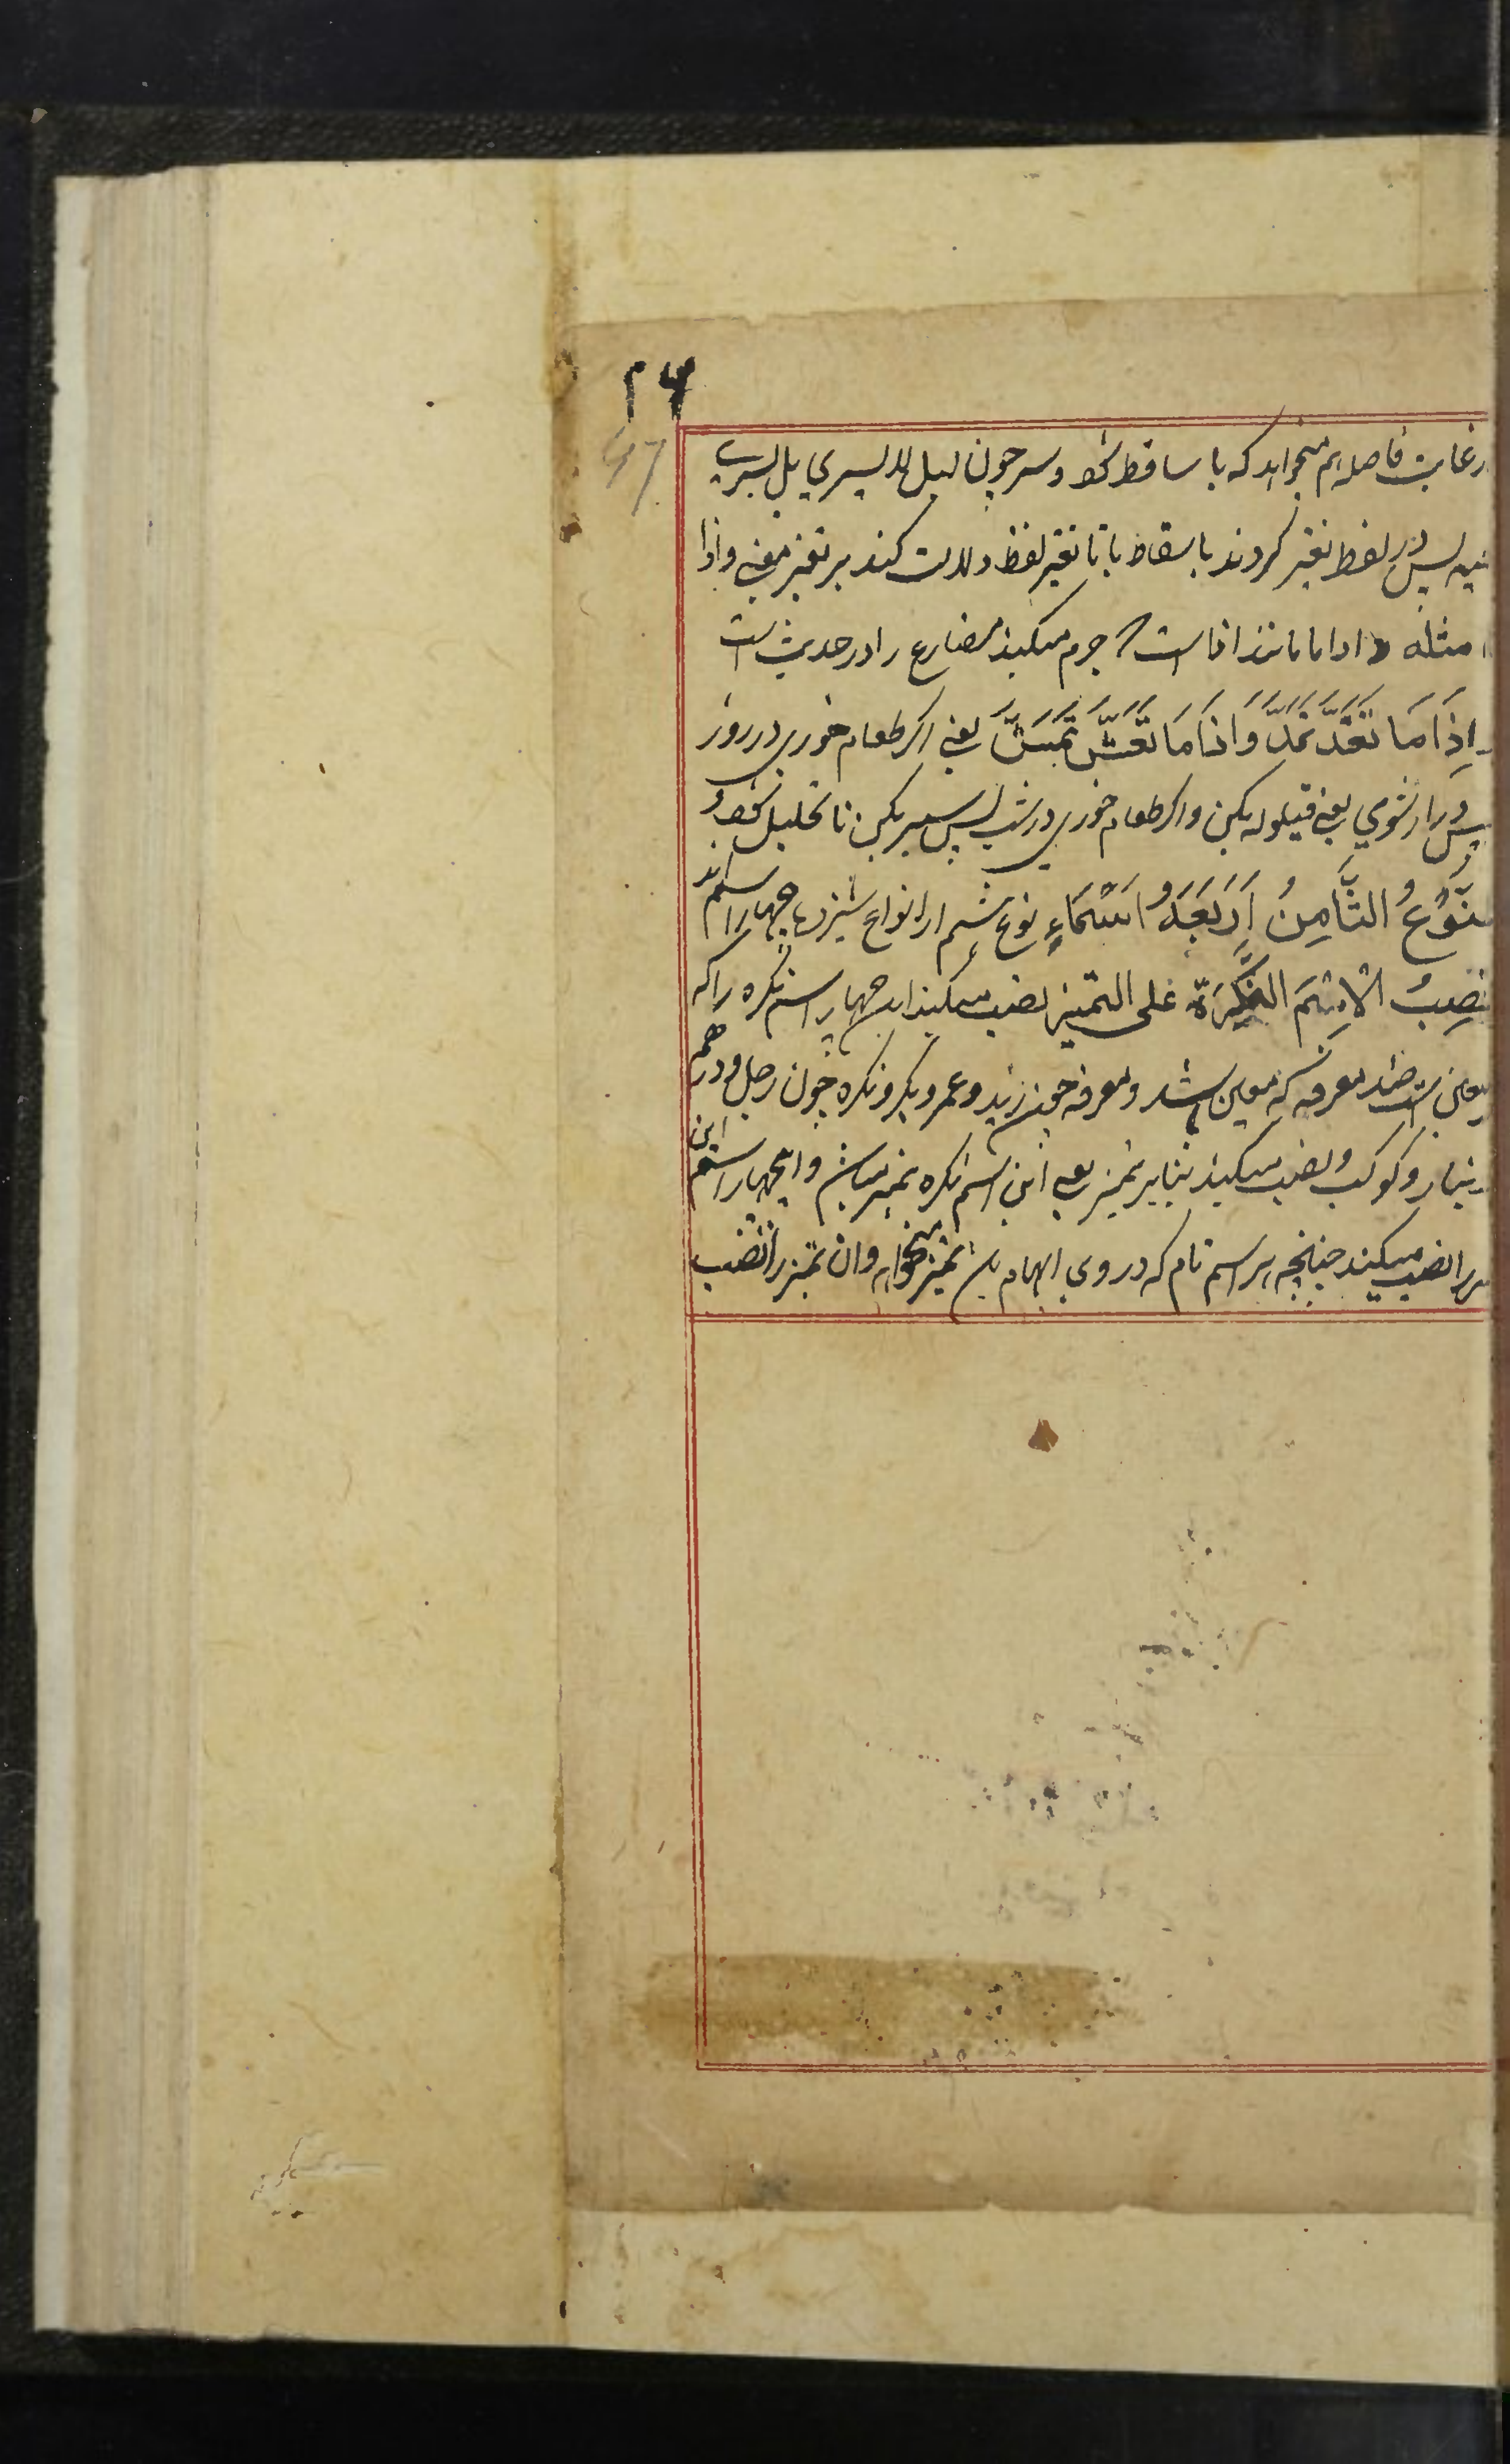 ۲۶
47
رعایت فاصله هم میخواهد که یا ساقط شود و یسر چون لیل لا یسری بل یسری
فیه پس در لفظ تغیر کردند باسقاط یا تا تغیر لفظ دلالت کند بر تغیر معنی واذا
مثله و اذاما مانند اذا است که جزم میکند مضارع را در حدیث است
اِذَا مَا تَغَدَّ تَمَدَّ وَاذَا مَا تَعَشَّ تَمَشَّ یعنی اکر طعام خوری در روز
پس دراز شوی یعنی قیلوله بکن و اکر طعام خوری در شب پس سیر بکن تا تحلیل شود و
لنَّوْعُ الثَّامِنُ اَرْبَعَةُ اَسْمَاءٍ نوع هشتم از انواع سیزده چهار اسم اند
تنصِبُ الْاِسْمَ النَّكِرَةَ عَلی التمیز نصب میکند این چهار اسم نکره را که
معین است ضد معرفه که معین باشد ومعرفه چون زید و عمرو بکر و نکره چون رجل ودرهم
دینار و کوکب ونصب میکند بنابر تمیز یعنی این اسم نکره تمیز میباشد و این چهار اسم این
را نصب میکند چنانچه هر اسم تام که در وی ابهام باشد تمیز میخواهد وان تمیز را نصب